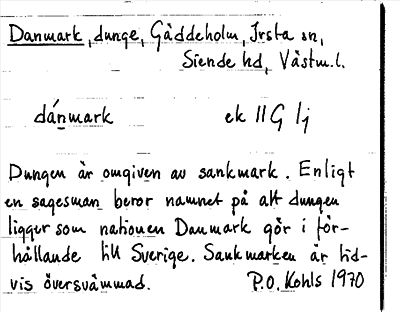 Danmark, dunge, Gäddeholm, Irsta sn,
Siende hd, Västm.l.
dánmark ek 11 G 1j
Dungen är omgiven av sankmark. Enligt
en sagesman beror namnet på att dungen
ligger som nationen Danmark gör i för-
hållande till Sverige. Sankmarken är tid-
vis översvämmad. P.O. Kohls 1970